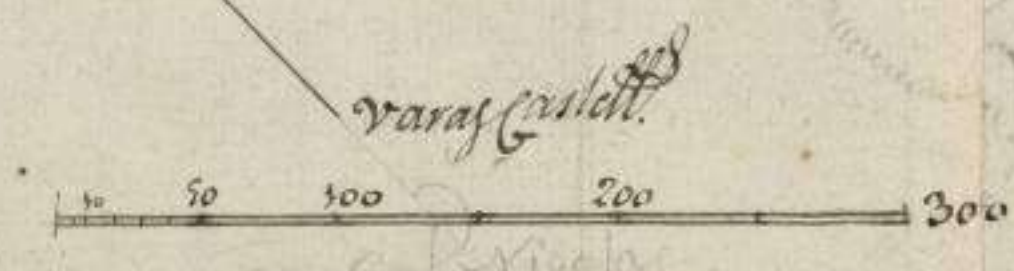 varas Castell.ˢ
10 50 100 200 300